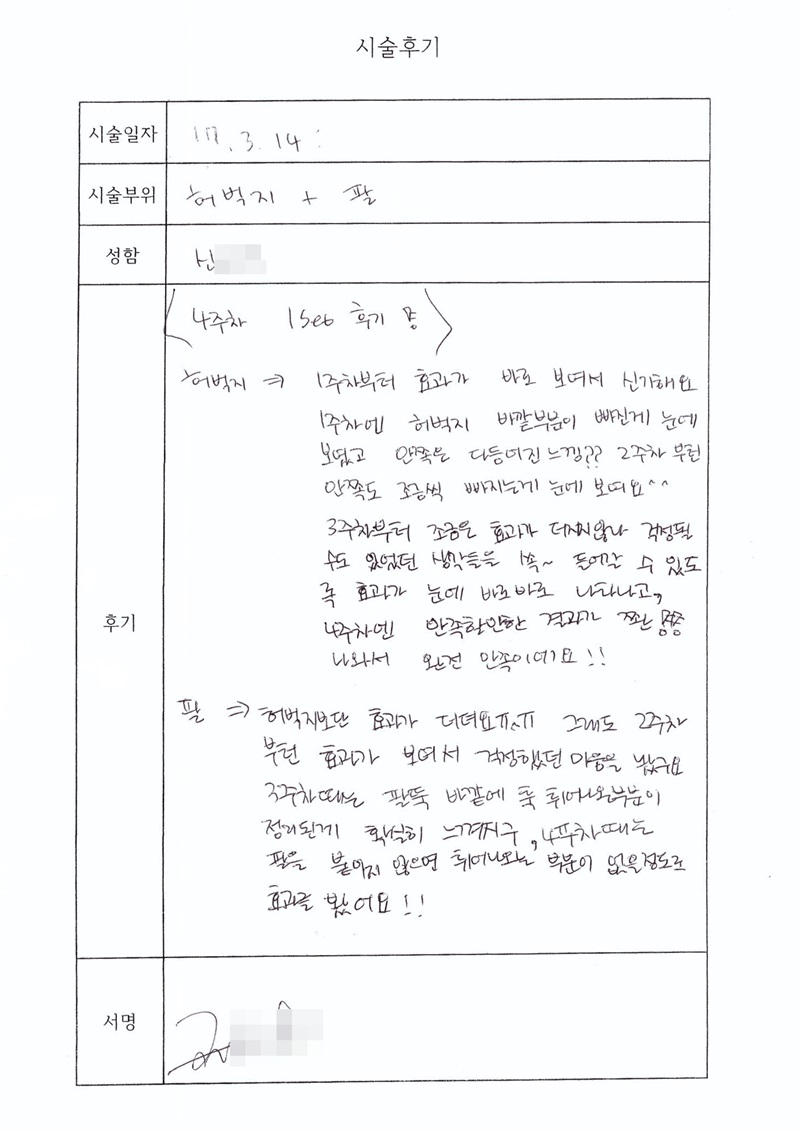 시술후기
시술일자 17. 3. 14.
시술부위 허벅지 + 팔
성함 신
후기
4주차 1set 후기
허벅지 ⇒ 1주차부터 효과가 바로 보여서 신기해요
1주차엔 허벅지 바깥부분이 빠진게 눈에
보였고 안쪽은 다듬어진 느낌?? 2주차 부턴
안쪽도 조금씩 빠지는게 눈에 보여요^^
3주차부터 조금은 효과가 더지지않나 걱정될
수도 있었던 생각들을 쏙~ 들어갈 수 있도
록 효과가 눈에 바로바로 나타나고,
4주차엔 만족할만한 결과가 쫘악
나와서 완전 만족이예요!!
팔 ⇒ 허벅지보단 효과가 더뎌요ㅠㅠ 그래도 2주차
부턴 효과가 보여서 걱정했던 마음을 놨구요
3주차때는 팔뚝 바깥에 툭 튀어나온부분이
정리된게 확실히 느껴지구, 4주차때는
팔을 붙이지 않으면 튀어나오는 부분이 없을정도로
효과를 봤어요!!
서명